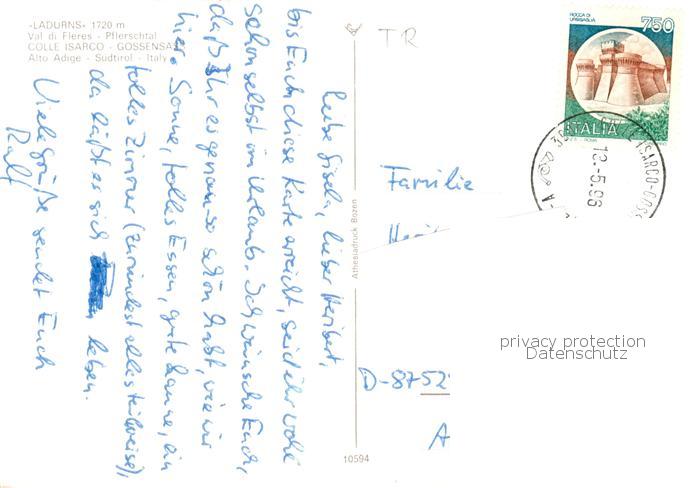 »LADURNS« 1720 m
Val di Fleres - Pflerschtal
COLLE ISARCO - GOSSENSASS
Alto Adige - Südtirol - Italy
Liebe Gisela, lieber Heribert,
bis Euch diese Karte erreicht, seid ihr wohl
schon selbst im Urlaub. Ich wünsche Euch,
daß Ihr es genau-so schön habt, wie wir
hier. Sonne, tolles Essen, gute Laune, ein
tolles Zimmer (zumindest alles teilweise),
da läßt es sich leben.
Viele Grüße sendet Euch
Ralf
TR
Athesiadruck Bozen
10594
ROCCA DI
URBISAGLIA
750
ITALIA
ISARCO-GOSS
12.-5.96
Familie
D-8752
A
privacy protection
Datenschutz